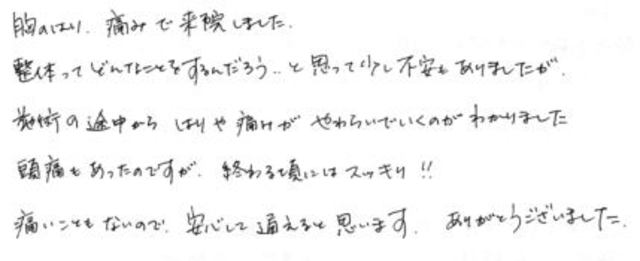 胸のはり、痛みで来院しました。
整体ってどんなことをするんだろう‥と思って少し不安もありましたが、
施術の途中から はりや痛みが やわらいでいくのがわかりました
頭痛もあったのですが、終わる頃にはスッキリ!!
痛いこともないので、安心して通えると思います。 ありがとうございました。